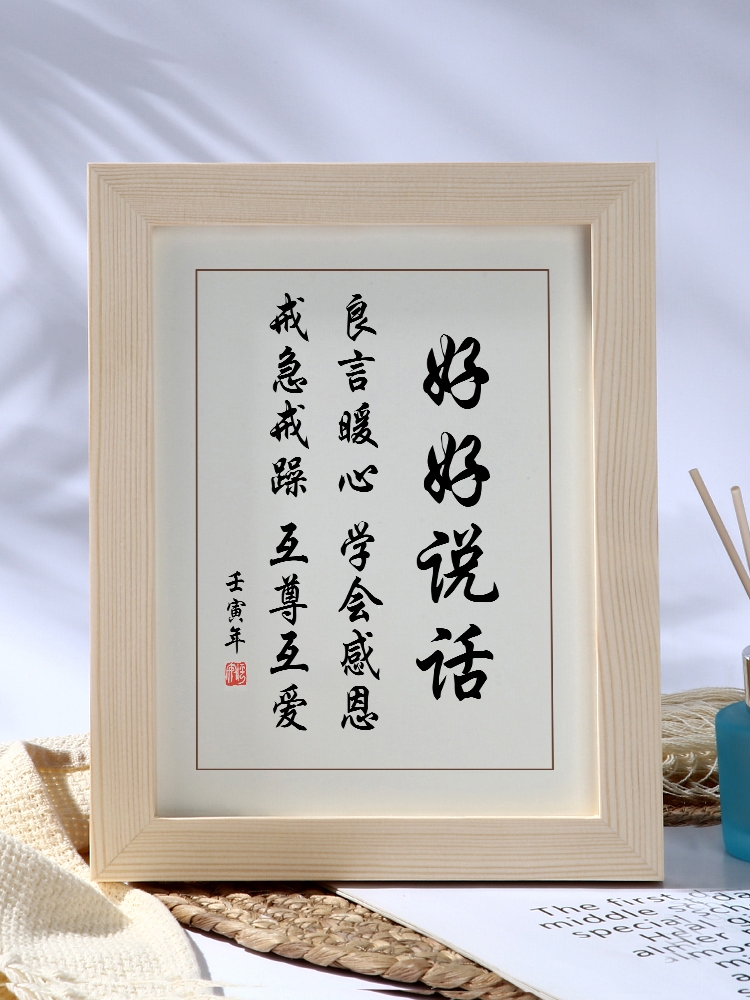 好好说话
良言暖心 学会感恩
戒急戒躁 互尊互爱
壬寅年
The first d
middle
special sch